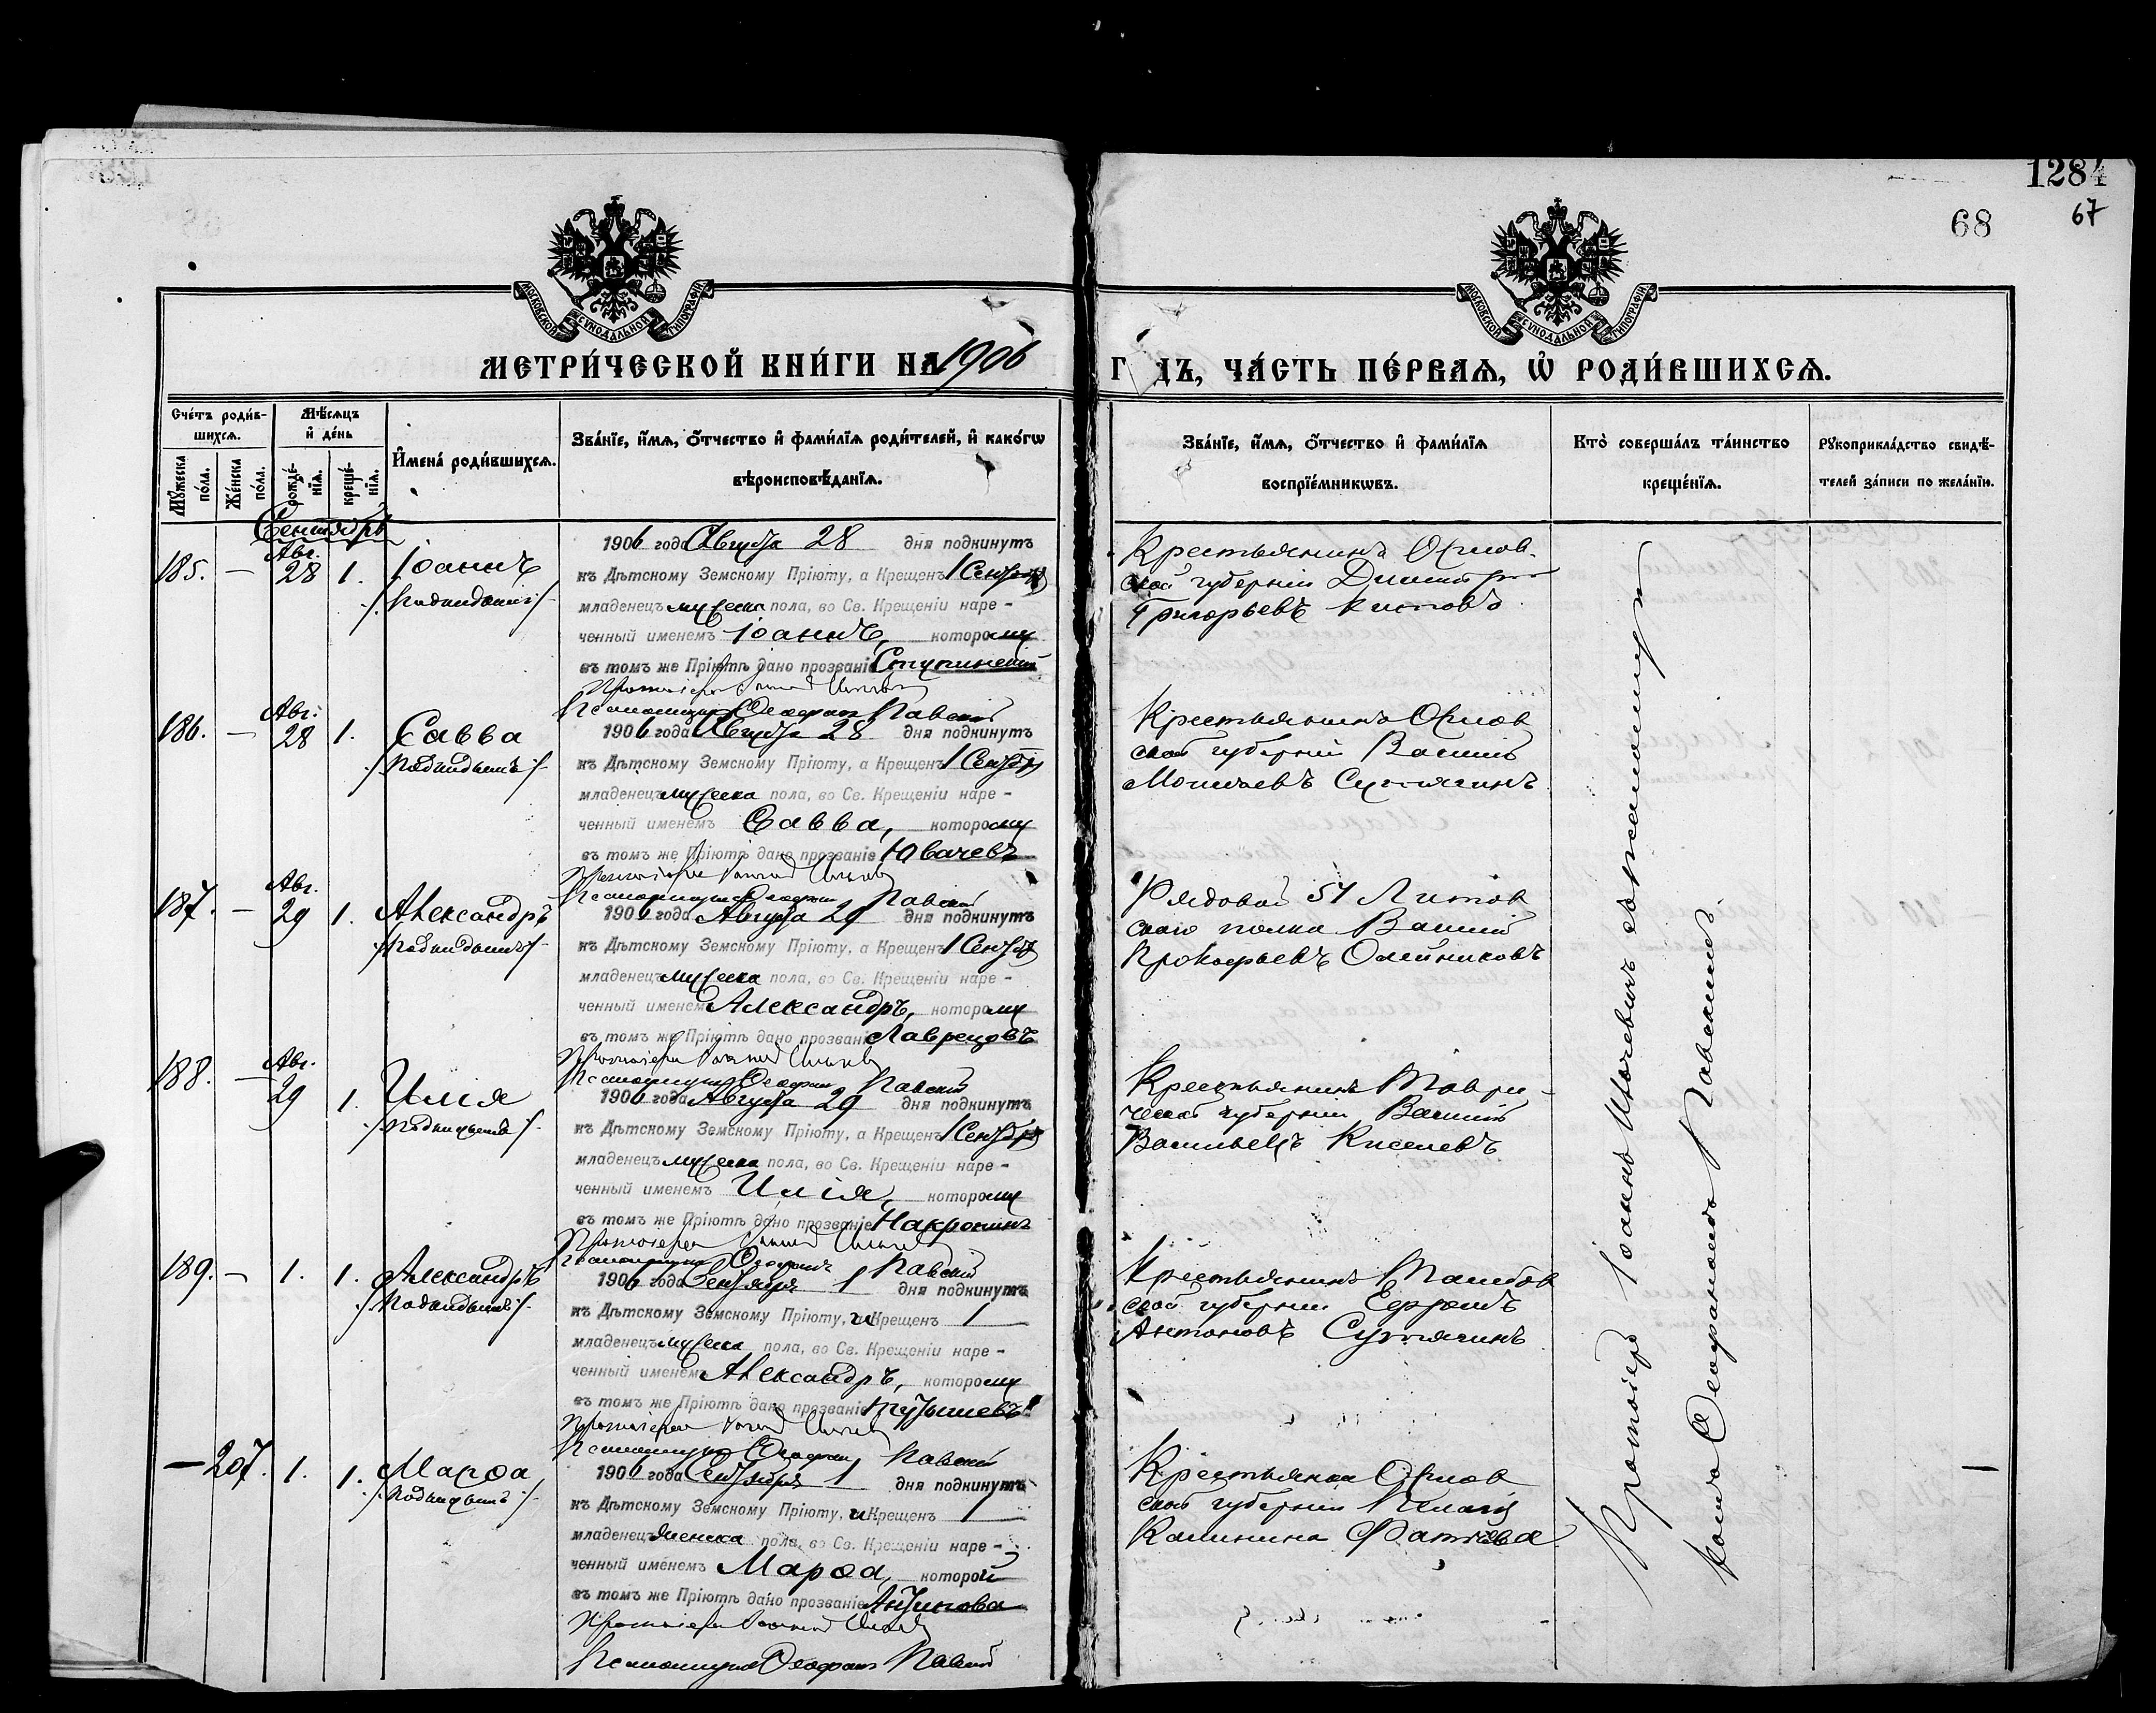 1284
68
67
МОСКОВСКОЙ СУНОДАЛЬНОЙ ТИПОГРАФІИ
МОСКОВСКОЙ СУНОДАЛЬНОЙ ТИПОГРАФІИ
МЕТРИ́ЧЕСКОЙ КНИ́ГИ НА 1906
Г ДЪ, ЧА́СТЬ ПЕ́РВАѦ, Ѡ҆ РОДИ́ВШИХСѦ.
Сче́тъ роди́в-
шихсѧ.
Мѣ́сѧцъ
и҆ де́нь
И҆мена̀ роди́вшихсѧ.
Зва́нїе, и҆́мѧ, ѻ҆́тчество и҆ фами́лїѧ роди́телей, и҆ како́гѡ
вѣроисповѣ́данїѧ.
Мꙋ́жеска
по́ла.
Же́нска
по́ла.
рожде́-
нїѧ.
креще́-
нїѧ.
Зва́нїе, и҆́мѧ, ѻ҆́тчество и҆ фами́лїѧ
воспрїе́мникѡвъ.
Кто̀ соверша́лъ та́инство
креще́нїѧ.
Рꙋкоприкла́дство свидѣ́-
телей за́писи по жела́нїю.
Сентябрь
185. — Авг. 28 1. Іоаннъ
/Подкидышъ/
1906 года Августа 28 дня подкинутъ
къ Дѣтскому Земскому Пріюту, а Крещенъ 1 Сентября
младенецъ мужеска пола, во Св. Крещеніи наре-
ченный именемъ Іоаннъ, которому
въ томъ же Пріютѣ дано прозваніе
Протоіерей Іоаннъ
Псаломщикъ Ѳеофанъ Павскій
Крестьянинъ Орлов-
ской губерніи Димитрій
Григорьевъ
186. — Авг. 28 1. Савва
/Подкидышъ/
1906 года Августа 28 дня подкинутъ
къ Дѣтскому Земскому Пріюту, а Крещенъ 1 Сентября
младенецъ мужеска пола, во Св. Крещеніи наре-
ченный именемъ Савва, которому
въ томъ же Пріютѣ дано прозваніе Ювачевъ
Протоіерей Іоаннъ
Псаломщикъ Ѳеофанъ Павскій
Крестьянинъ Орлов
ской губерніи Василій
Сутягинъ
187. — Авг. 29 1. Александръ
/Подкидышъ/
1906 года Августа 29 дня подкинутъ
къ Дѣтскому Земскому Пріюту, а Крещенъ 1 Сентября
младенецъ мужеска пола, во Св. Крещеніи наре-
ченный именемъ Александръ, которому
въ томъ же Пріютѣ дано прозваніе Лаврецовъ
Протоіерей Іоаннъ
Псаломщикъ Ѳеофанъ Павскій
Рядовой 51 Литов
скаго полка Василій
Прокофьевъ Олейниковъ
188. — Авг. 29 1. Илія
/Подкидышъ/
1906 года Августа 29 дня подкинутъ
къ Дѣтскому Земскому Пріюту, а Крещенъ 1 Сентября
младенецъ мужеска пола, во Св. Крещеніи наре-
ченный именемъ Илія, которому
въ томъ же Пріютѣ дано прозваніе Накронинъ
Протоіерей Іоаннъ
Псаломщикъ Ѳеофанъ Павскій
Крестьянинъ Таври-
ческой губерніи Василій
Васильевъ Киселевъ
189. — 1. 1. Александръ
/Подкидышъ/
1906 года Сентября 1 дня подкинутъ
къ Дѣтскому Земскому Пріюту, и Крещенъ 1
младенецъ мужеска пола, во Св. Крещеніи наре-
ченный именемъ Александръ, которому
въ томъ же Пріютѣ дано прозваніе
Протоіерей Іоаннъ
Псаломщикъ Ѳеофанъ Павскій
Крестьянинъ Тамбов
ской губерніи Ефремъ
Антоновъ Сутягинъ
— 207. 1. 1. Марѳа
/Подкидышъ/
1906 года Сентября 1 дня подкинутъ
къ Дѣтскому Земскому Пріюту, и Крещенъ 1
младенецъ женска пола, во Св. Крещеніи наре-
ченный именемъ Марѳа, которой
въ томъ же Пріютѣ дано прозваніе Антипова
Протоіерей Іоаннъ
Псаломщикъ Ѳеофанъ Павскій
Крестьянка Орлов
ской губерніи Пелагія
Калинина
Протоіерей Іоаннъ съ псаломщи
комъ Ѳеофаномъ Павскимъ.